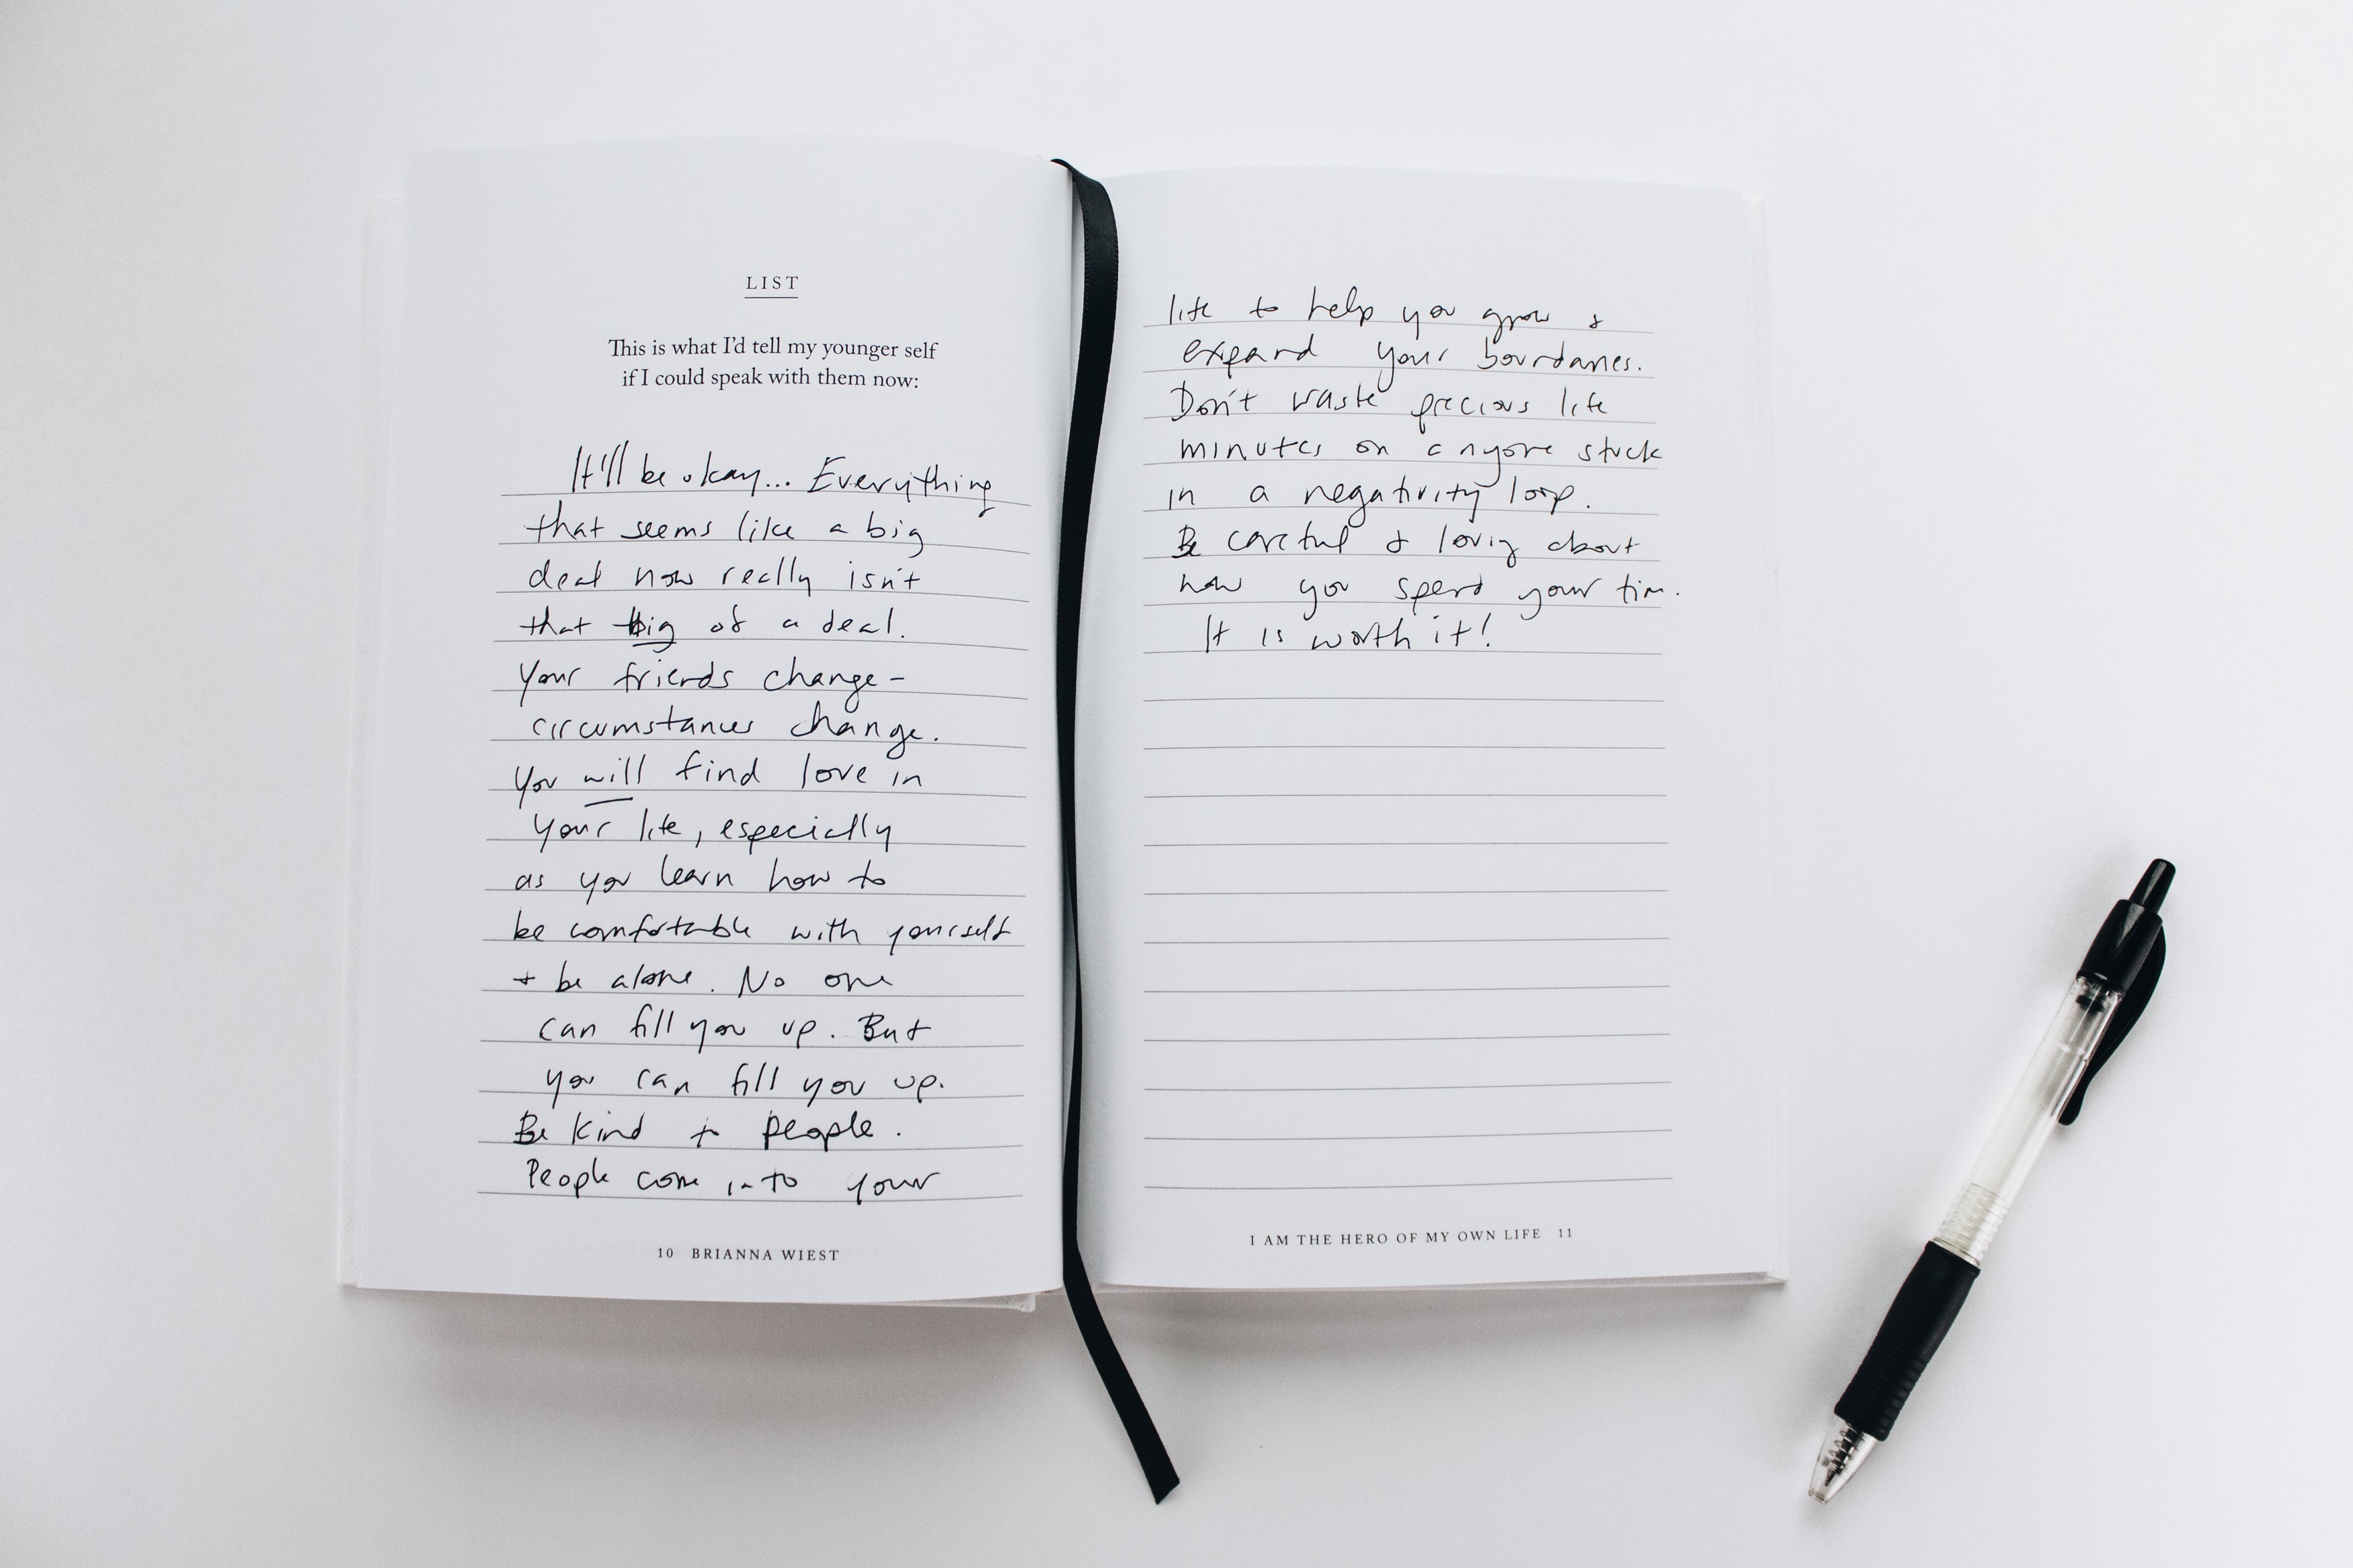 LIST
This is what I'd tell my younger self
if I could speak with them now:
It'll be okay... Everything
that seems like a big
deal now really isn't
that big of a deal.
Your friends change-
circumstances change.
You will find love in
your life, especially
as you learn how to
be comfortable with yourself
+ be alone. No one
can fill you up. But
you can fill you up.
Be kind to people.
People come into your
10 BRIANNA WIEST
life to help you grow &
expand your boundaries.
Don't waste precious life
minutes on anyone stuck
in a negativity loop.
Be careful & loving about
how you spend your time.
It is worth it!
I AM THE HERO OF MY OWN LIFE 11